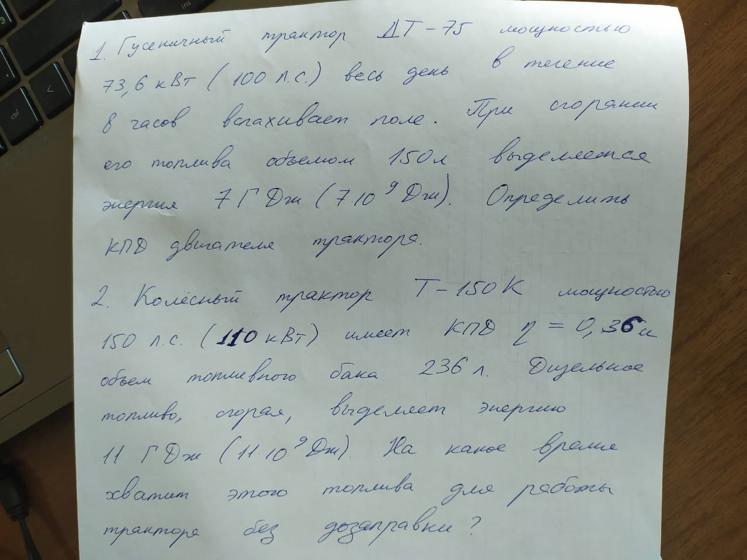 1. Гусеничный трактор ДТ-75 мощностью
73,6 кВт (100 л.с.) весь день в течение
8 часов вспахивает поле. При сгорании
его топлива объемом 150л выделяется
энергия 7 ГДж (7 10⁹ Дж). Определить
КПД двигателя трактора.
2. Колёсный трактор Т-150К мощностью
150 л.с. (110 кВт) имеет КПД η = 0,36 и
объем топливного бака 236 л. Дизельное
топливо, сгорая, выделяет энергию
11 ГДж (11·10⁹ Дж). На какое время
хватит этого топлива для работы
трактора без дозаправки?